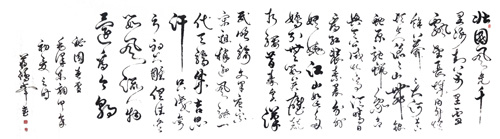 北国风光千
里冰封万里雪
飘望长城内外惟
余莽莽大河上
下顿失滔滔山舞
银蛇原驰蜡象欲
与天公试比高须晴日
看红装素裹分外妖
娆江山如此多
娇引无数英雄竞
折腰惜秦皇汉
武略输文采唐宗
宋祖稍逊风骚一
代天骄成吉思
汗只识弯
弓射大雕俱往矣
数风流人物
还看今朝
沁园春雪
毛泽东词